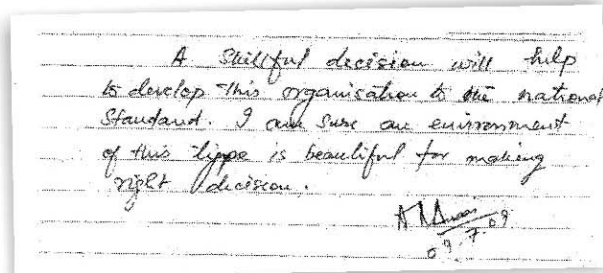 A skillful decision will help
to develop this organisation to the national
Standand. I am sure an environment
of this tippe is beautiful for making
right decision.
09.7.09